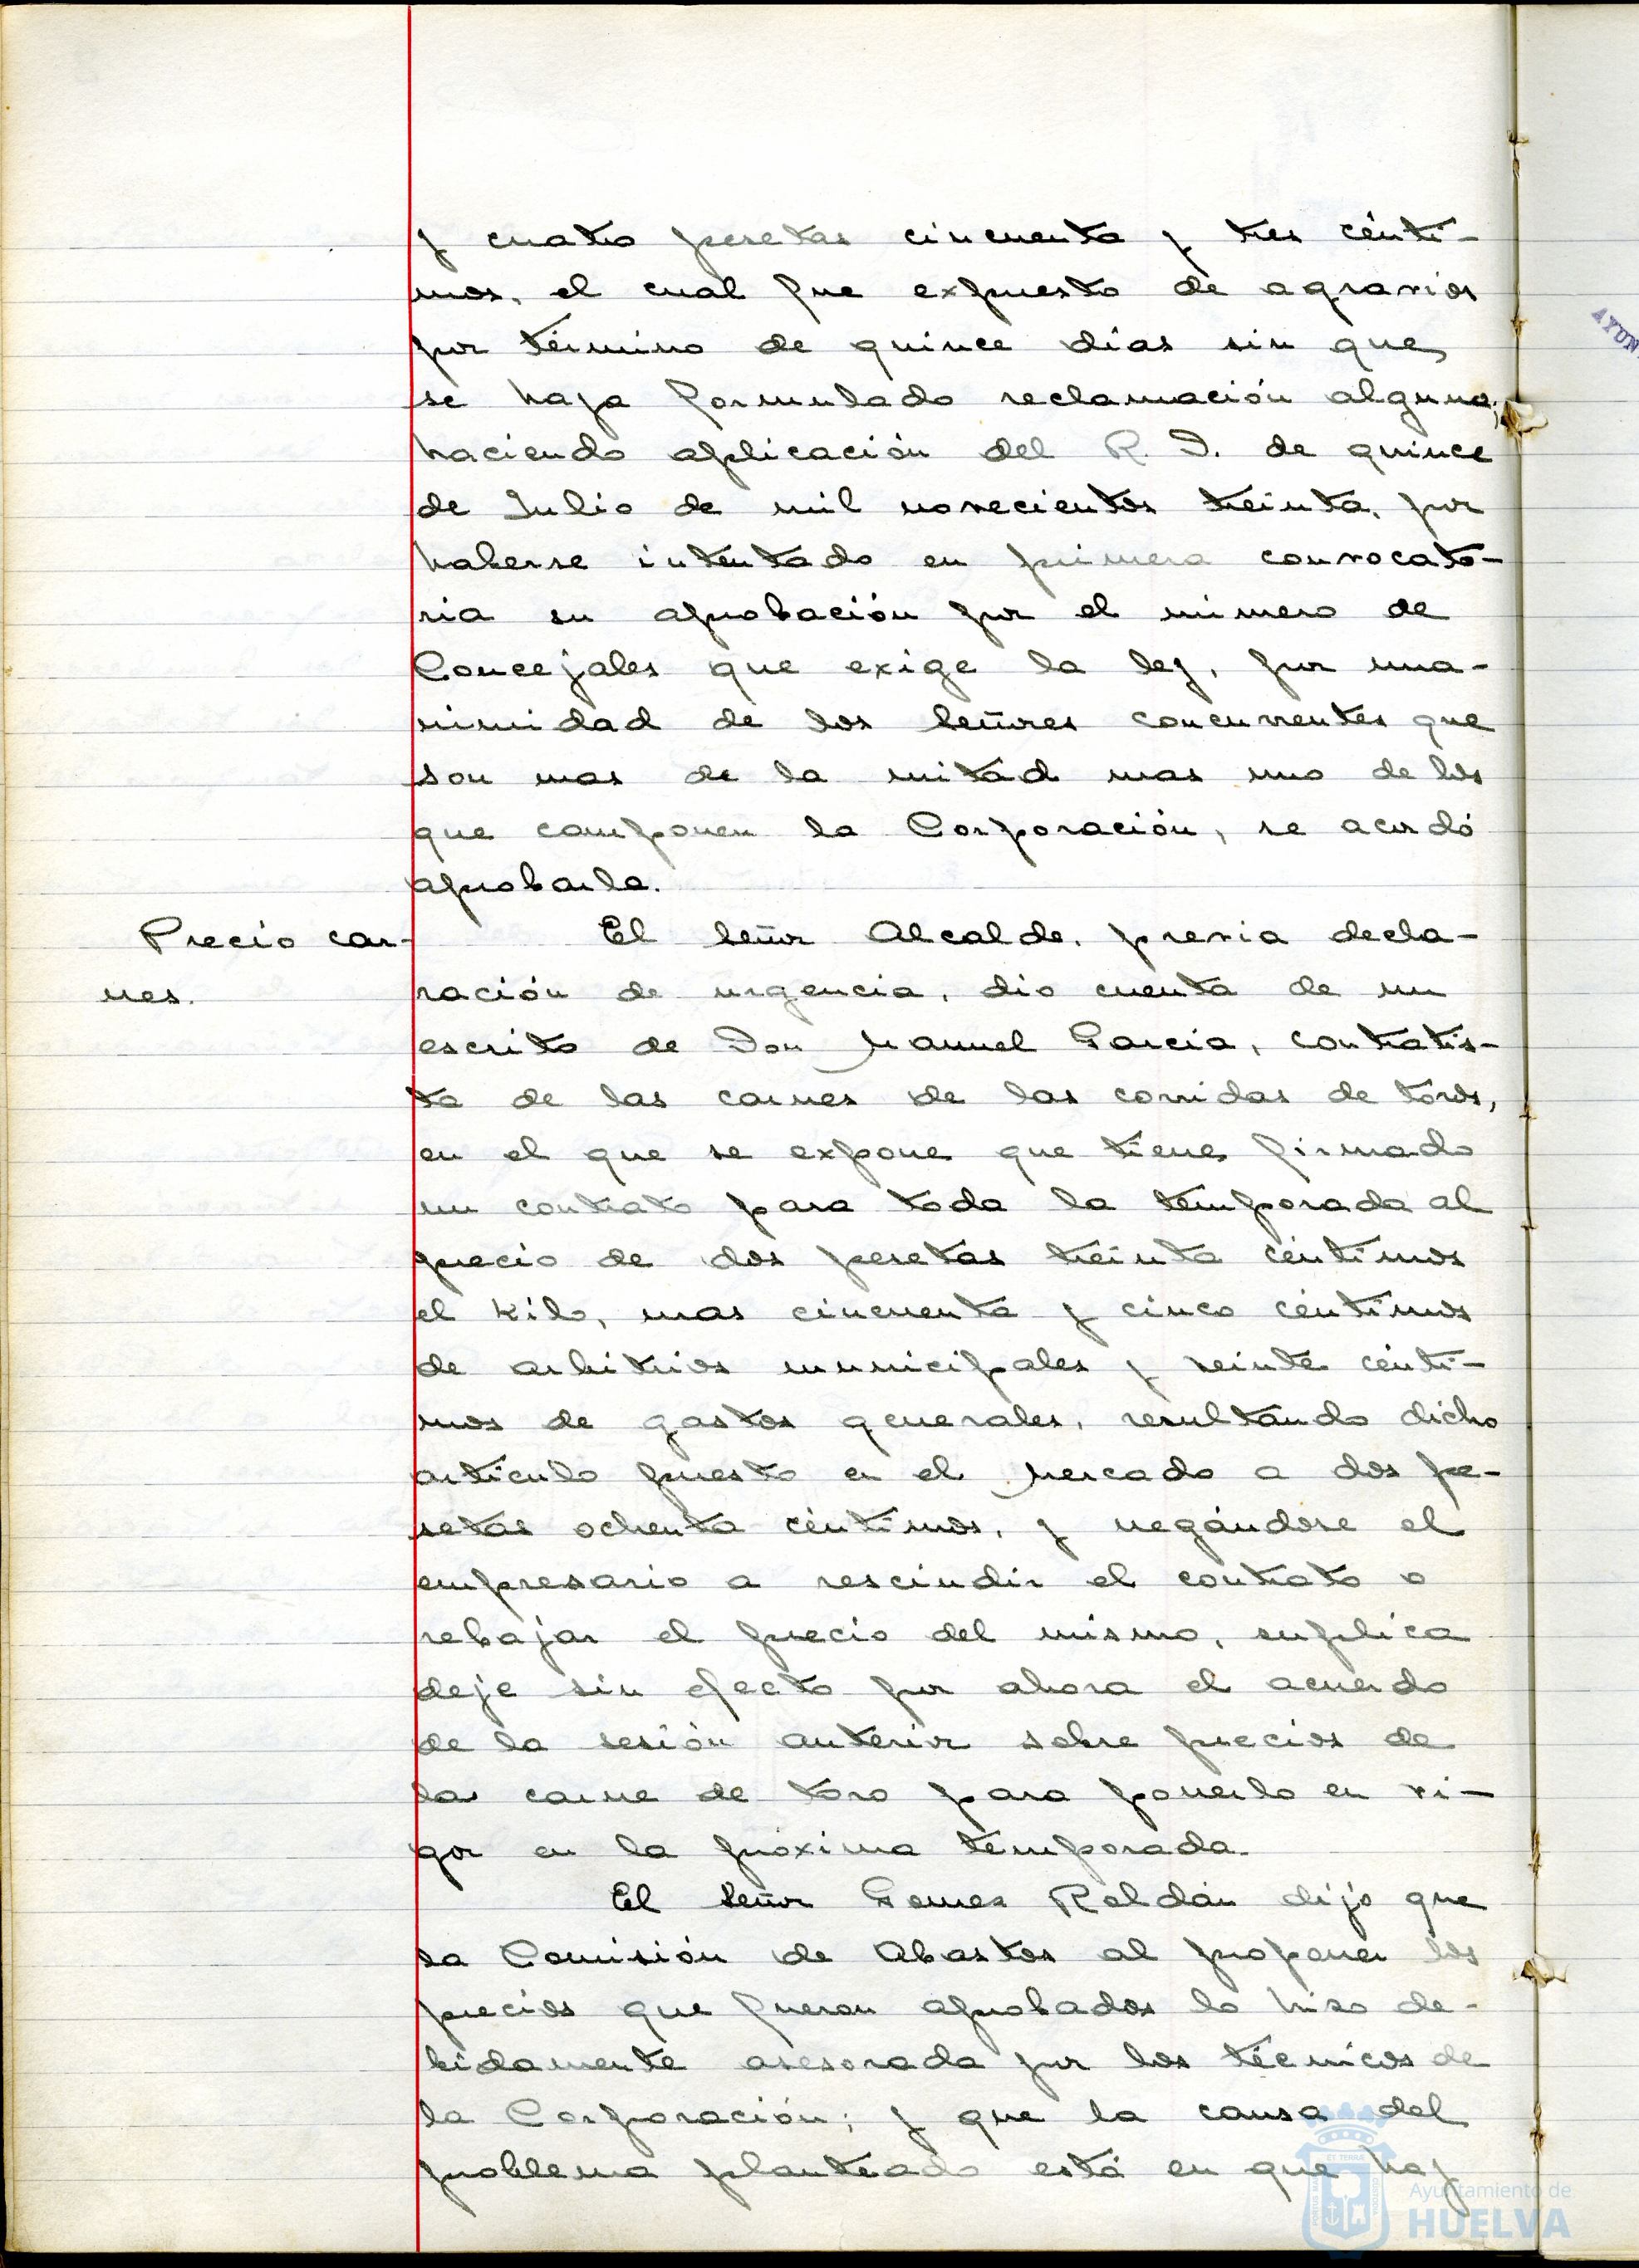 y cuatro pesetas cincuenta y tres cénti-
mos, el cual fue expuesto de agravios
por término de quince días sin que
se haya formulado reclamación alguna;
haciendo aplicación del R. D. de quince
de Julio de mil novecientos treinta, por
haberse intentado en primera convocato-
ria su aprobación por el número de
Concejales que exige la ley, por una-
nimidad de los Señores concurrentes que
son mas de la mitad mas uno de los
que componen la Corporación, se acordó
aprobarla.
Precio car-
nes.
El Señor Alcalde, previa decla-
ración de urgencia, dio cuenta de un
escrito de Don Manuel Garcia, contratis-
ta de las carnes de las corridas de toros,
en el que se expone que tiene firmado
un contrato para toda la temporada al
precio de dos pesetas treinta céntimos
el kilo, mas cincuenta y cinco céntimos
de arbitrios municipales y veinte cénti-
mos de gastos generales, resultando dicho
artículo puesto en el Mercado a dos pe-
setas ochenta céntimos, y negándose el
empresario a rescindir el contrato o
rebajar el precio del mismo, suplica
deje sin efecto por ahora el acuerdo
de la sesión anterior sobre precios de
las carne de toro para ponerlo en vi-
gor en la próxima temporada.
El Señor Gomez Roldán dijo que
la Comisión de Abastos al proponer los
precios que fueron aprobados lo hizo de-
bidamente asesorada por los técnicos de
la Corporación; y que la causa del
problema planteado está en que hay
AYUN
Ayuntamiento de
HUELVA